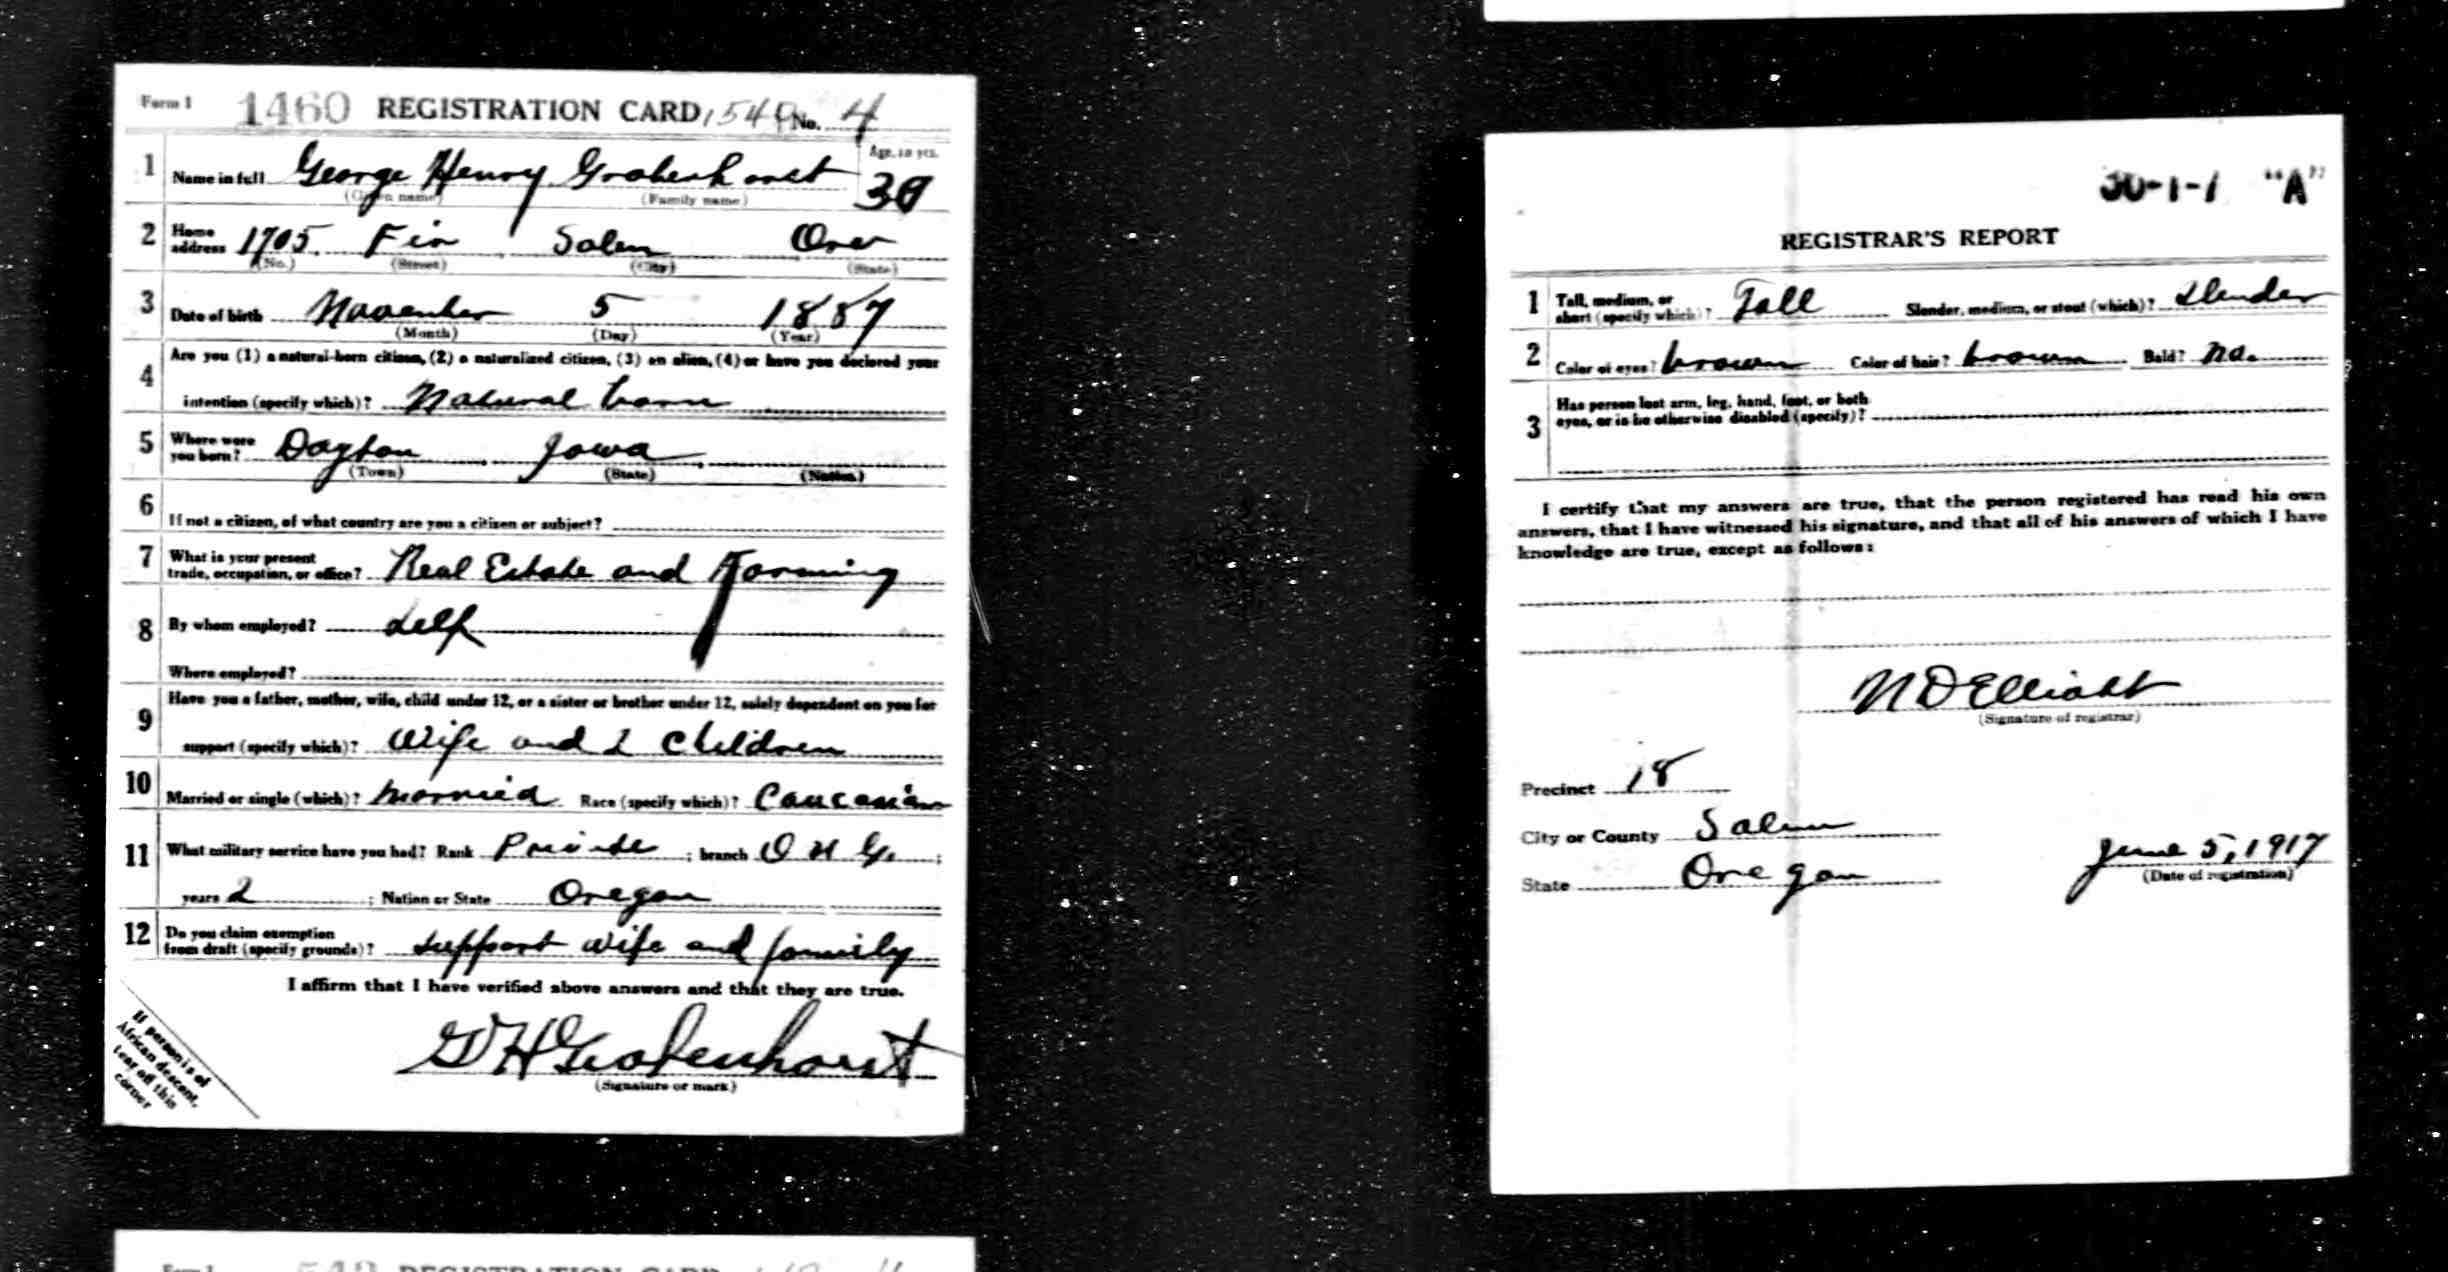 Form 1 1460 REGISTRATION CARD No. 4
1 Name in full George Henry Grabenhorst Age, in yrs.
(Given name) (Family name)
2 Home address 1705 Fir Salem Ore
(No.) (Street) (City) (State)
3 Date of birth November 5 1887
(Month) (Day) (Year)
4 Are you (1) a natural-born citizen, (2) a naturalized citizen, (3) an alien, (4) or have you declared your
intention (specify which)? Natural born
5 Where were you born? Dayton Iowa
(Town) (State) (Nation)
6 If not a citizen, of what country are you a citizen or subject?
7 What is your present
trade, occupation, or office? Real Estate and Farming
8 By whom employed? self
Where employed?
9 Have you a father, mother, wife, child under 12, or a sister or brother under 12, solely dependent on you for
support (specify which)? Wife and 2 children
10 Married or single (which)? married Race (specify which)? Caucasian
11 What military service have you had? Rank Private ; branch O N G. ;
years 2 ; Nation or State Oregon
12 Do you claim exemption
from draft (specify grounds)? support wife and family
I affirm that I have verified above answers and that they are true.
G H Grabenhorst
(Signature or mark)
If person is of
African descent,
tear off this
corner
Form 1 REGISTRATION CARD
"A"
REGISTRAR'S REPORT
1 Tall, medium, or
short (specify which)? Tall Slender, medium, or stout (which)? slender
2 Color of eyes? brown Color of hair? brown Bald? no.
3 Has person lost arm, leg, hand, foot, or both
eyes, or is he otherwise disabled (specify)?
I certify that my answers are true, that the person registered has read his own
answers, that I have witnessed his signature, and that all of his answers of which I have
knowledge are true, except as follows:
N D Elliott
(Signature of registrar)
Precinct 18
City or County Salem
State Oregon
June 5, 1917
(Date of registration)